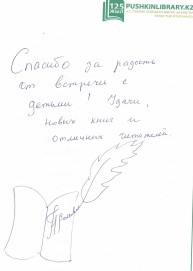 125
PUSHKINLIBRARY.KZ
Спасибо за радость
от встречи с
детьми! Удачи,
новых книг и
отличных читателей.